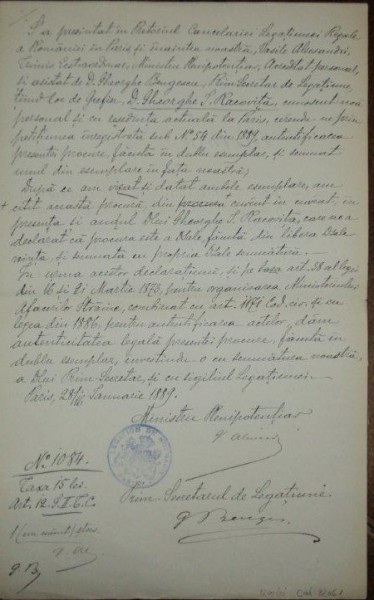 S'a presintat în Pretoriul Cancelariei Legațiunei Regale
a României în Paris și înaintea noastră, Vasile Alesandri,
Trimis Estraordinar, Ministru Plenipotențiar, Acreditat personal,
și asistat de D. Gheorghe Bengescu, Prim Secretar de Legațiune,
țiind loc de grefier, D. Gheorghe S. Racoviță, cunoscut nouă
personal și cu reședința actuală la Paris, cerându-ne prin
petițiunea înregistrată sub No 54 din 1889, autentificarea
presentei procure, făcută în dublu esemplar, și semnat
unul din esemplare în fața noastră;
După ce am visat și datat ambele esemplare, am
citit această procură, din cuvânt în cuvânt, în
presența și audul Dlui Gheorghe S. Racoviță, care ne-a
declarat că procura este a Dsale, făcută din libera Dsale
voință, și semnată cu propria Dsale semnătură.
În urma acestor declarațiuni și pe baza art. 38 al legei
din și 21 Martie 1873, pentru organisarea Ministeriului
Afacerilor Străine, combinat cu art. 1171 Cod. civ. și cu
legea din 1886, pentru autentificarea actelor, dăm
autenticitatea legală presentei procure, făcută în
dublu esemplar, investindu-o cu semnătura noastră,
a Dlui Prim Secretar, și cu sigiliul Legațiunei.
Paris, 28/16 Ianuarie 1889.
Ministru Plenipotențiar
No 1084.
Taxa 15 lei.
Art. 12
Prim Secretarul de Legațiune
G. Bengescu
G B